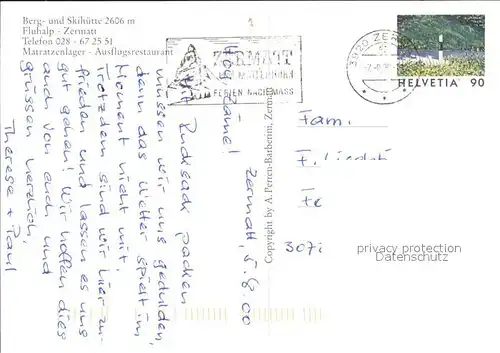 Berg- und Skihütte 2606 m
Fluhalp - Zermatt
Telefon 028 - 67 25 51
Matratzenlager - Ausflugsrestaurant
3920 ZERMATT
ZERMATT
MATTERHORN
FERIEN NACH MASS
HELVETIA 90
Copyright by A. Perren-Barberini, Zermatt
Zermatt, 5.6.00
Hoi zäme!
Mit Rucksack packen
müssen wir uns gedulden,
denn das Wetter spielt im
Moment nicht mit.
Trotzdem sind wir hier zu-
frieden und lassen es uns
gut gehen! Wir hoffen dies
auch von euch und
grüssen herzlich,
Therese + Paul
Fam.
307
privacy protection
Datenschutz